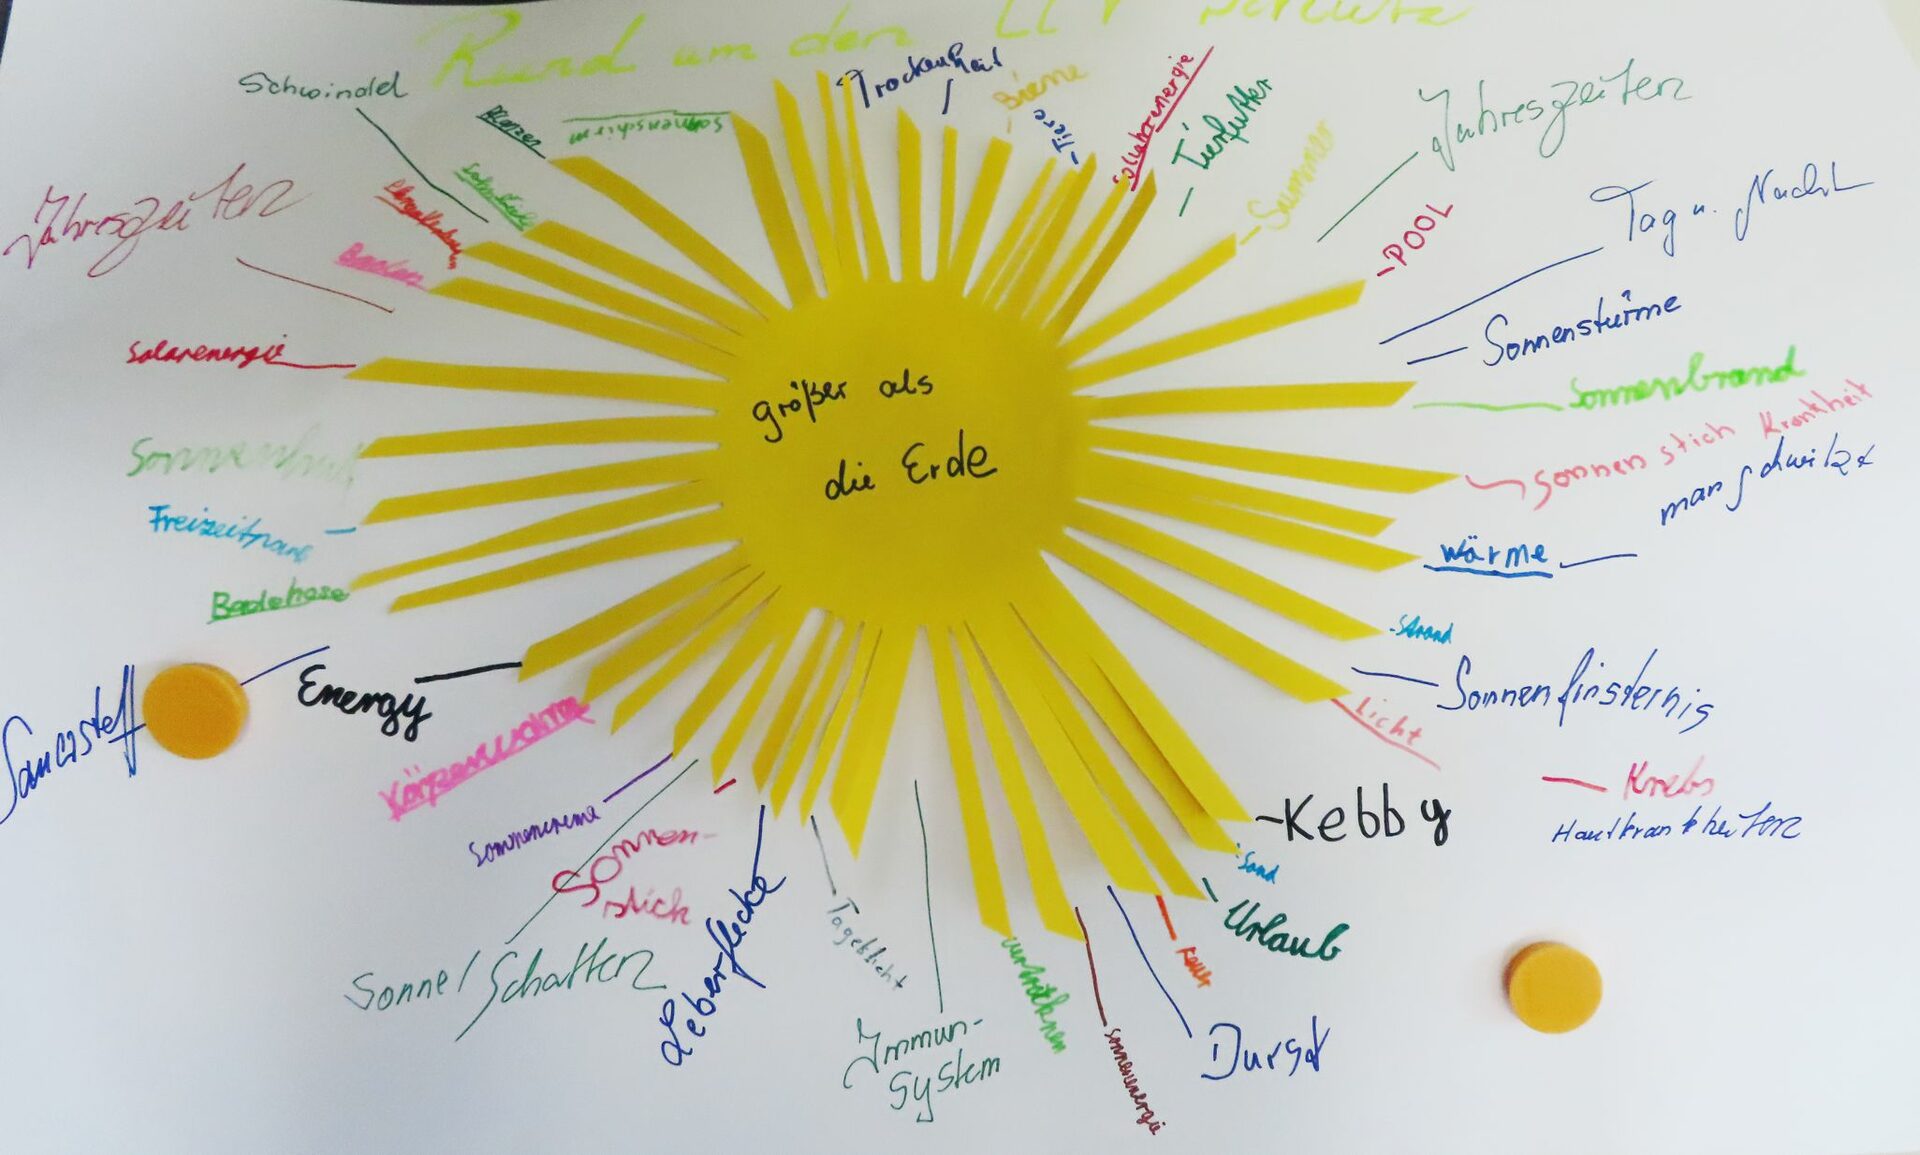 Rund um den
größer als
die Erde
Trockenheit
Biene
Tiere
Solarenergie
Tierfutter
Summer
Jahreszeiten
-POOL
Tag u. Nacht
Sonnenstürme
Sonnenbrand
Sonnenstich Krankheit
man schwitzt
Wärme
-Strand
Sonnenfinsternis
Licht
Krebs
Hautkrankheiten
-Kebby
Sand
Urlaub
Durst
Sonnenenergie
vertrocknen
Immun-
System
Tageslicht
Leberflecke
Sonnen-
stich
Sonne/Schatten
Sonnencreme
Energy
Sauerstoff
Badehose
Freizeitpark
Sonnenhut
Solarenergie
Jahreszeiten
Baden
Schwindel
Pflanzen
Sonnenschirm